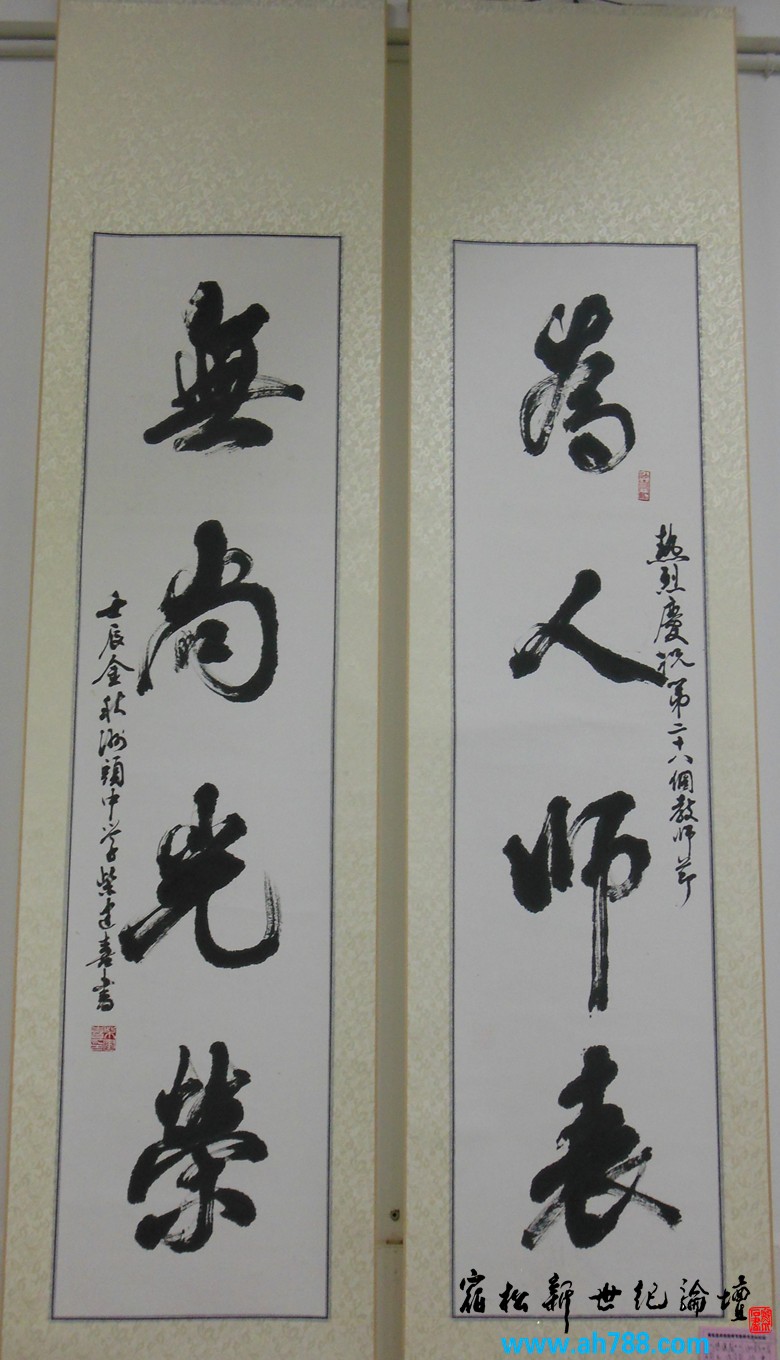 為人师表
熱烈慶祝第二十八個教师节
無尚光榮
壬辰金秋洲頭中学柴建喜書
宿松新世紀論壇
www.ah788.com